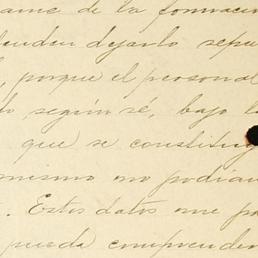 ame de la formación
lenden dejarlo sepu
, porque el personal
lo según sé, bajo l
que se constituy
mismo no podian
. Estos datos me pa
pueda comprender